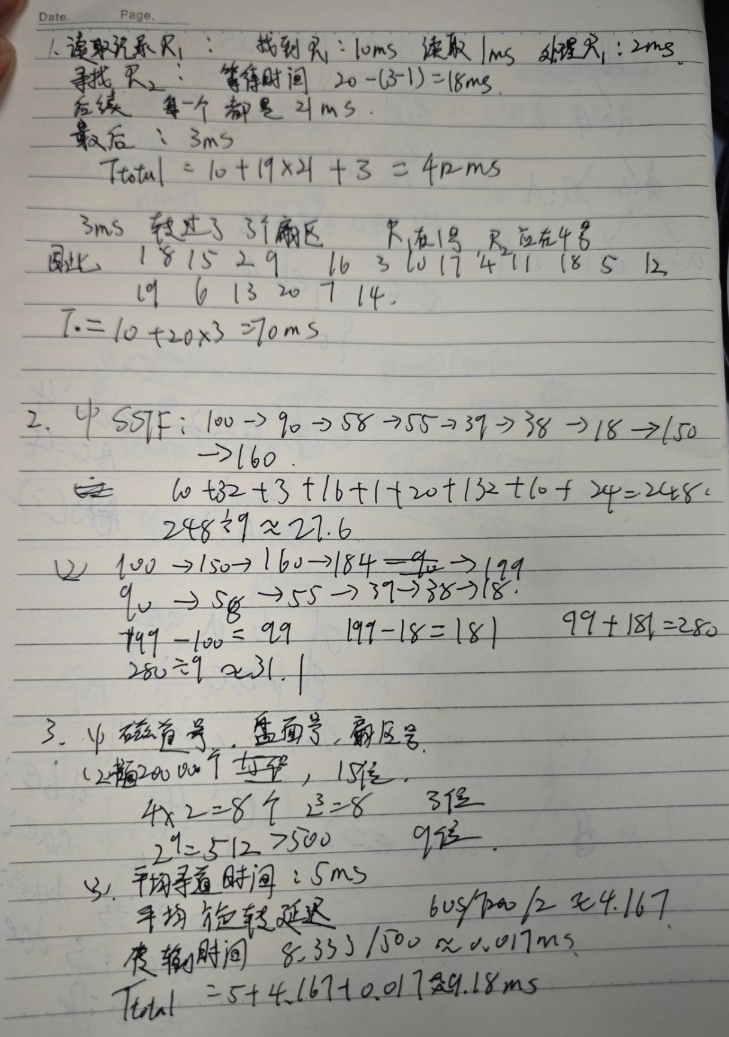 Date. Page.
1. 读取记录R₁: 找到R₁:10ms 读取1ms 处理R₁:2ms.
寻找R₂: 等待时间 20-(3-1)=18ms.
后续 每一个都是21ms.
最后:3ms
Ttotal = 10+19×21+3 = 412ms
3ms 转过了3个扇区 R₁在1号 R₂应在4号
因此 1 8 15 2 9 16 3 10 17 4 11 18 5 12
19 6 13 20 7 14.
T.=10+20×3=70ms
2. (1) SSTF: 100→90→58→55→39→38→18→150
→160.
10+32+3+16+1+20+132+10+24=248.
248÷9≈27.6
(2) 100→150→160→184→199
90→58→55→39→38→18.
199-100=99 199-18=181 99+181=280
280÷9≈31.1
3. (1) 磁道号、盘面号、扇区号.
(2) 20000个, 15位.
4×2=8个 2³=8 3位
2⁹=512>500 9位.
(3). 平均寻道时间:5ms
平均旋转延迟 60s/7200/2≈4.167
传输时间 8.333/500≈0.017ms
Ttotal =5+4.167+0.017≈9.18ms